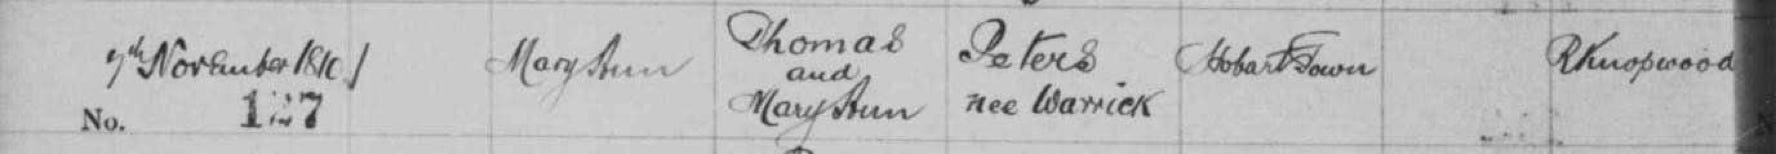 7th November 1810
Mary Ann
Thomas
and
Mary Ann
Peters
nee Warrick
Hobart Town
R Knopwood
No. 127